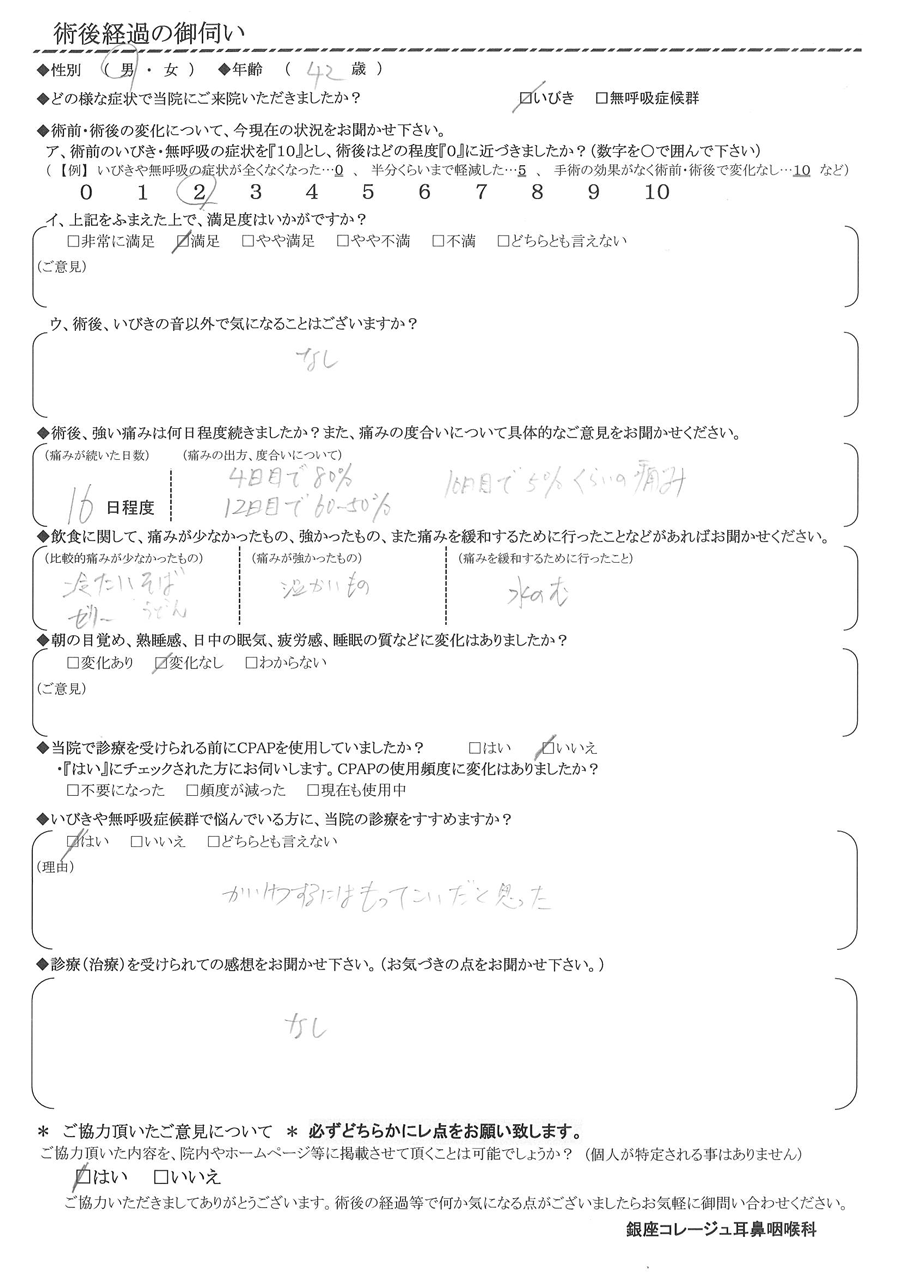 術後経過の御伺い
◆性別 ( 男 ・ 女 ) ◆年齢 ( 42 歳 )
◆どの様な症状で当院にご来院いただきましたか? ☑いびき □無呼吸症候群
◆術前・術後の変化について、今現在の状況をお聞かせ下さい。
ア、術前のいびき・無呼吸の症状を『10』とし、術後はどの程度『0』に近づきましたか?(数字を〇で囲んで下さい)
(【例】 いびきや無呼吸の症状が全くなくなった…0 、 半分くらいまで軽減した…5 、 手術の効果がなく術前・術後で変化なし…10 など)
0 1 2 3 4 5 6 7 8 9 10
イ、上記をふまえた上で、満足度はいかがですか?
□非常に満足 ☑満足 □やや満足 □やや不満 □不満 □どちらとも言えない
(ご意見)
ウ、術後、いびきの音以外で気になることはございますか?
なし
◆術後、強い痛みは何日程度続きましたか?また、痛みの度合いについて具体的なご意見をお聞かせください。
(痛みが続いた日数) (痛みの出方、度合いについて)
16 日程度
4日目で80%
12日目で60~50%
16日目で5%くらいの痛み
◆飲食に関して、痛みが少なかったもの、強かったもの、また痛みを緩和するために行ったことなどがあればお聞かせください。
(比較的痛みが少なかったもの) (痛みが強かったもの) (痛みを緩和するために行ったこと)
冷たいそば 温かいもの 水のむ
ゼリー うどん
◆朝の目覚め、熟睡感、日中の眠気、疲労感、睡眠の質などに変化はありましたか?
□変化あり ☑変化なし □わからない
(ご意見)
◆当院で診療を受けられる前にCPAPを使用していましたか? □はい ☑いいえ
・『はい』にチェックされた方にお伺いします。CPAPの使用頻度に変化はありましたか?
□不要になった □頻度が減った □現在も使用中
◆いびきや無呼吸症候群で悩んでいる方に、当院の診療をすすめますか?
☑はい □いいえ □どちらとも言えない
(理由)
かいけつするにはもってこいだと思った
◆診療(治療)を受けられての感想をお聞かせ下さい。(お気づきの点をお聞かせ下さい。)
なし
* ご協力頂いたご意見について * 必ずどちらかにレ点をお願い致します。
ご協力頂いた内容を、院内やホームページ等に掲載させて頂くことは可能でしょうか? (個人が特定される事はありません)
☑はい □いいえ
ご協力いただきましてありがとうございます。術後の経過等で何か気になる点がございましたらお気軽に御問い合わせください。
銀座コレージュ耳鼻咽喉科